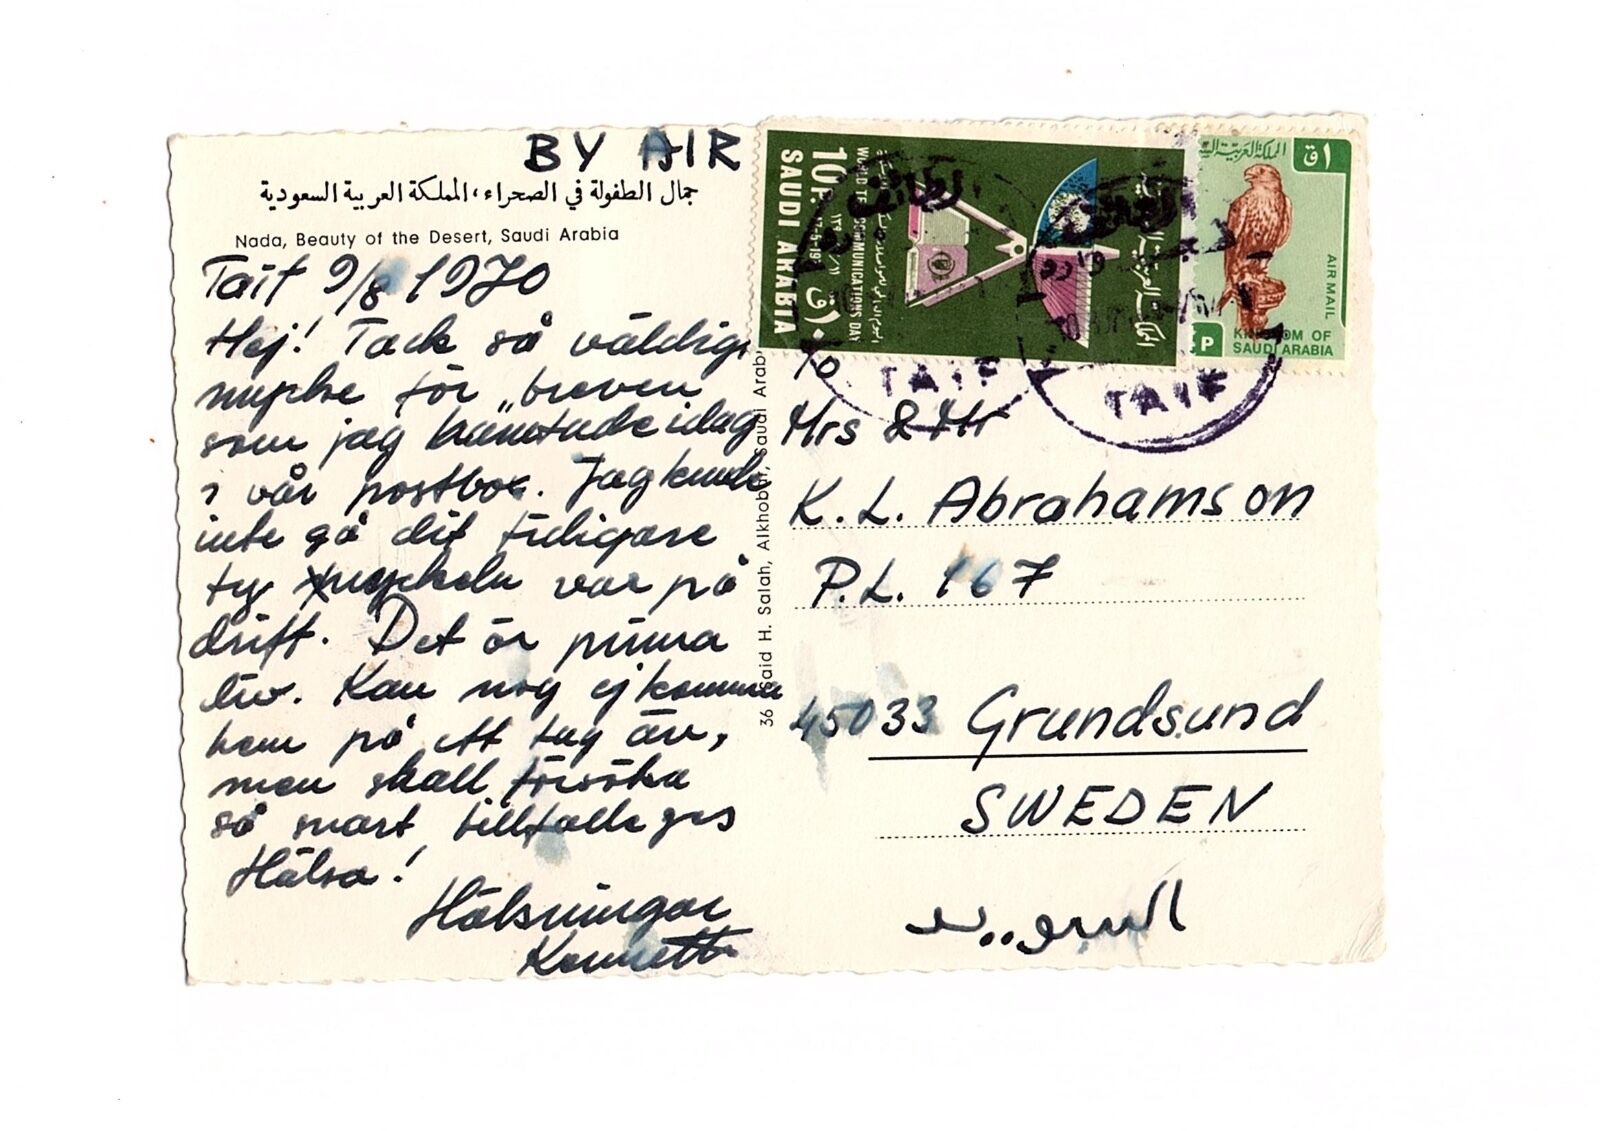 BY AIR
جمال الطفولة في الصحراء، المملكة العربية السعودية
Nada, Beauty of the Desert, Saudi Arabia
Taif 9/8 1970
Hej! Tack så väldigt
mycke för breven
som jag hämtade idag
i vår postbox. Jag kunde
inte gå dit tidigare
ty nyckeln var på
drift. Det är prima
liv. Kan nog ej komma
hem på ett tag än,
men skall försöka
så snart tillfälle ges
Hälsa!
Hälsningar
Kennett
36 Said H. Salah, Alkhobar, Saudi Arab
SAUDI ARABIA
10P.
WORLD TELECOMMUNICATIONS DAY
المملكة العربية السعودية
١ق
AIRMAIL
P
KINGDOM OF
SAUDI ARABIA
الطائف
TAIF
الطائف
TAIF
c/o
Mrs & Mr
K. L. Abrahamson
P.L. 167
45033 Grundsund
SWEDEN
السويد